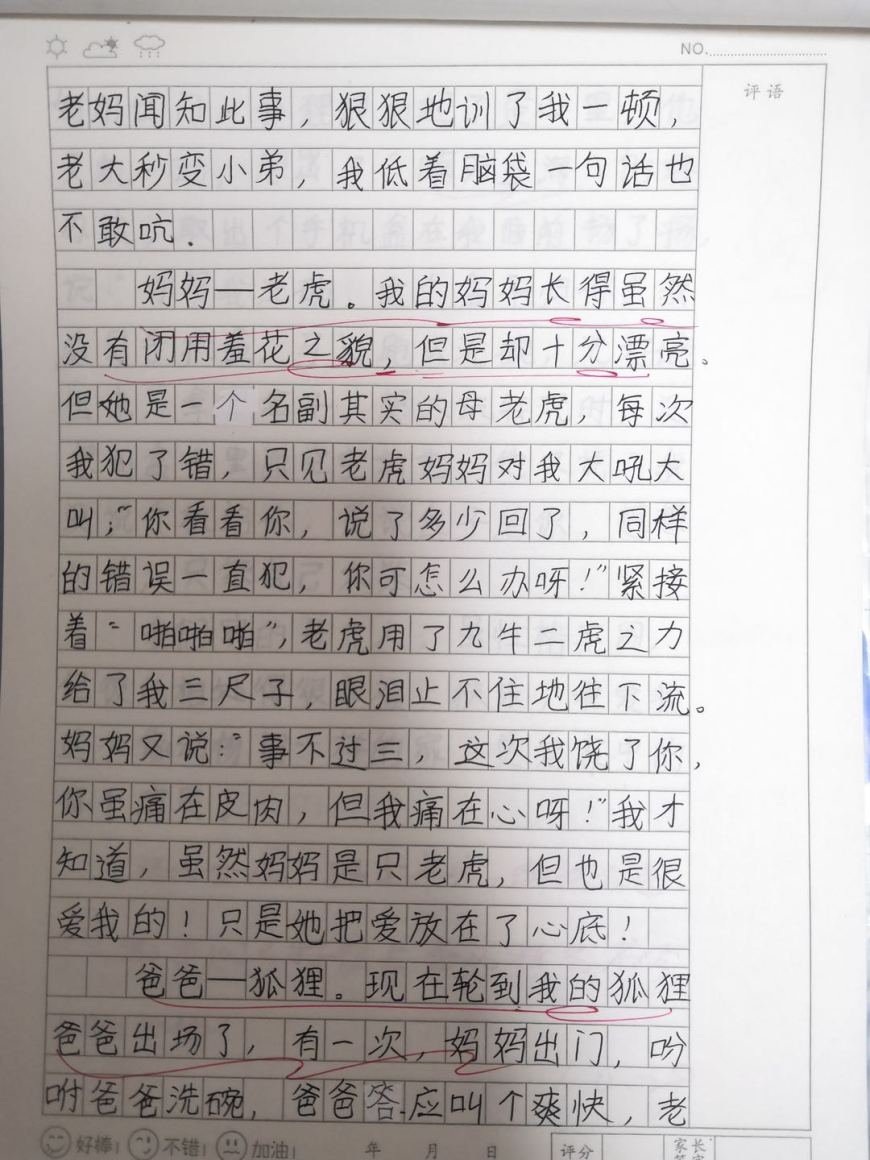 NO.
评语
老妈闻知此事，狠狠地训了我一顿，
老大秒变小弟，我低着脑袋一句话也
不敢吭.
妈妈—老虎。我的妈妈长得虽然
没有闭用羞花之貌，但是却十分漂亮。
但她是一个名副其实的母老虎，每次
我犯了错，只见老虎妈妈对我大吼大
叫；“你看看你，说了多少回了，同样
的错误一直犯，你可怎么办呀！”紧接
着“啪啪啪”，老虎用了九牛二虎之力
给了我三尺子，眼泪止不住地往下流。
妈妈又说：“事不过三，这次我饶了你，
你虽痛在皮肉，但我痛在心呀！”我才
知道，虽然妈妈是只老虎，但也是很
爱我的！只是她把爱放在了心底！
爸爸—狐狸。现在轮到我的狐狸
爸爸出场了，有一次，妈妈出门，吩
咐爸爸洗碗，爸爸答应叫个爽快，老
好棒! 不错! 加油! 年 月 日 评分 家长